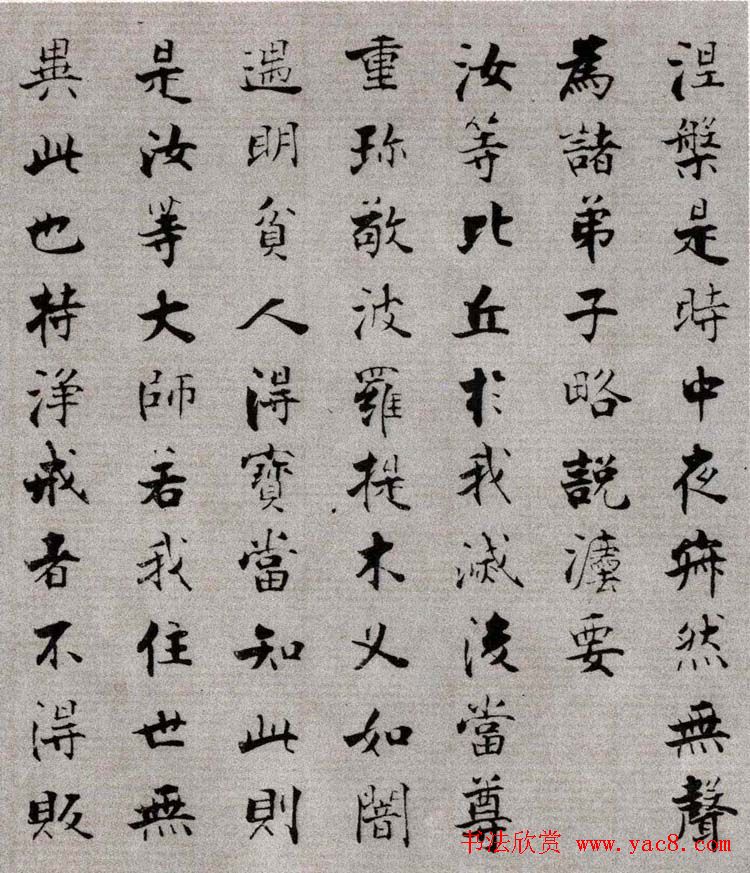 涅槃是時中夜寂然無聲
為諸弟子略說法要
汝等比丘於我滅後當尊
重珎敬波羅提木叉如闇
遇明貧人得寶當知此則
是汝等大師若我住世無
異此也持淨戒者不得販
书法欣赏 www.yac8.com